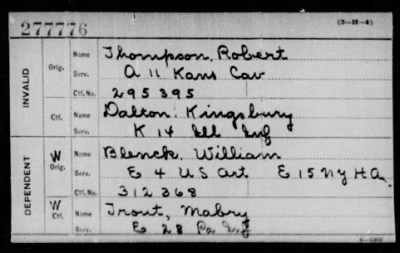 277776
(3-2E-4)
INVALID
Orig. Name Thompson, Robert
Serv. A 11 Kans Cav
Ctf. No. 295395
Ctf. Name Dalton Kingsbury
Serv. K 14 Ill Inf
DEPENDENT
W Orig. Name Blenck, William
Serv. E 4 US Art E 15 NY HA.
Ctf. No. 312368
W Ctf. Name Trout, Mabry
Serv. E 28 Pa Inf